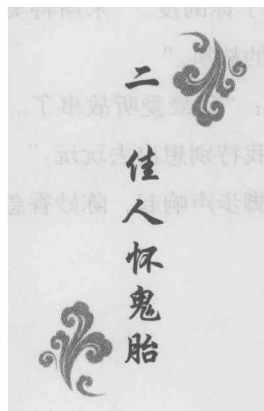 二
佳人怀鬼胎